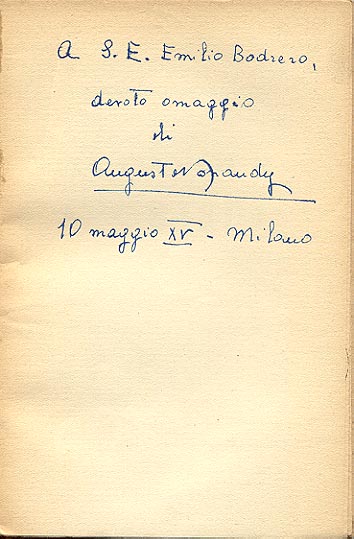 A S. E. Emilio Bodrero,
devoto omaggio
di
10 maggio XV - Milano